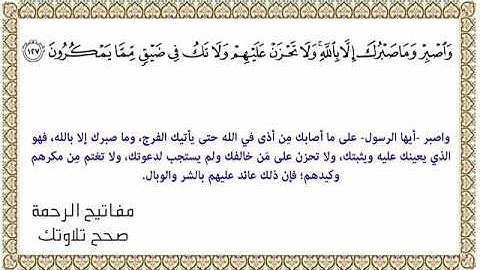 وَٱصۡبِرۡ وَمَا صَبۡرُكَ إِلَّا بِٱللَّهِۚ وَلَا تَحۡزَنۡ عَلَيۡهِمۡ وَلَا تَكُ فِي ضَيۡقٖ مِّمَّا يَمۡكُرُونَ ١٢٧
واصبر -أيها الرسول- على ما أصابك مِن أذى في الله حتى يأتيك الفرج، وما صبرك إلا بالله، فهو
الذي يعينك عليه ويثبتك، ولا تحزن على مَن خالفك ولم يستجب لدعوتك، ولا تغتم مِن مكرهم
وكيدهم؛ فإن ذلك عائد عليهم بالشر والوبال.
مفاتيح الرحمة
صحح تلاوتك